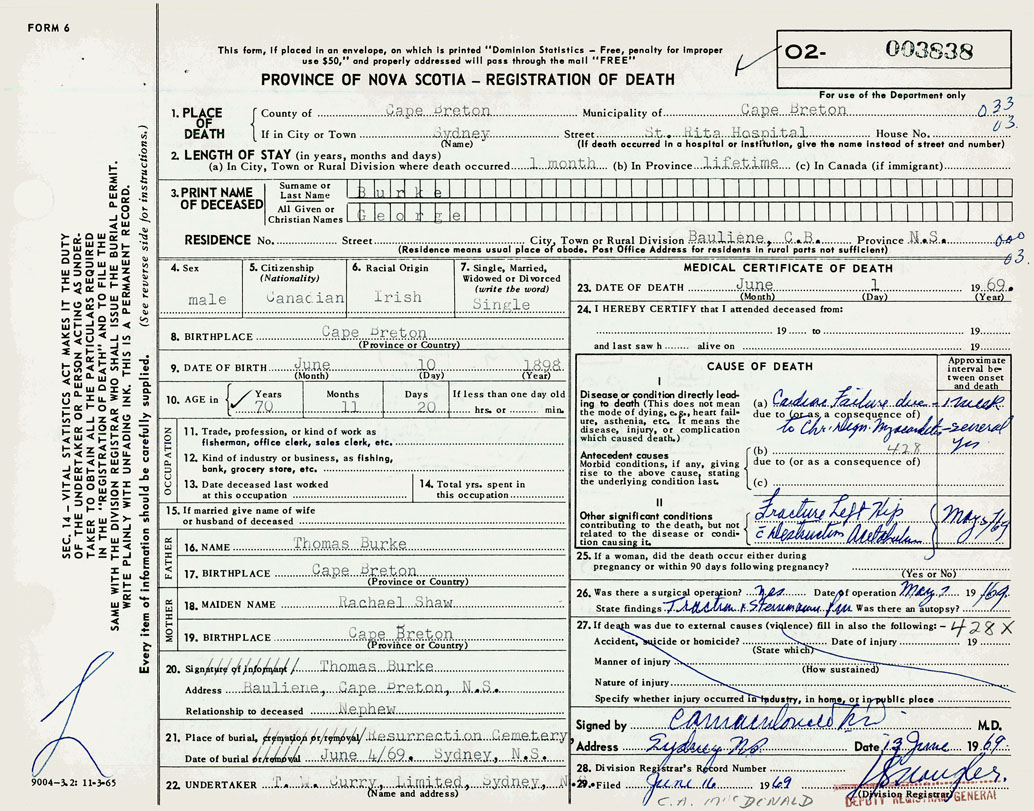 FORM 6
This form, if placed in an envelope, on which is printed "Dominion Statistics – Free, penalty for improper
use $50," and properly addressed will pass through the mail "FREE"
PROVINCE OF NOVA SCOTIA – REGISTRATION OF DEATH
O2- 003838
For use of the Department only
033
03.
1. PLACE OF DEATH
County of Cape Breton Municipality of Cape Breton
If in City or Town Sydney Street St. Rita Hospital House No.
(Name) (If death occurred in a hospital or institution, give the name instead of street and number)
2. LENGTH OF STAY (in years, months and days)
(a) In City, Town or Rural Division where death occurred 1 month (b) In Province lifetime (c) In Canada (if immigrant)
3. PRINT NAME OF DECEASED
Surname or Last Name Burke
All Given or Christian Names George
RESIDENCE No. Street City, Town or Rural Division Bauliene, C.B. Province N.S.
(Residence means usual place of abode. Post Office Address for residents in rural parts not sufficient)
000
03.
4. Sex
male
5. Citizenship
(Nationality)
Canadian
6. Racial Origin
Irish
7. Single, Married,
Widowed or Divorced
(write the word)
Single
8. BIRTHPLACE Cape Breton
(Province or Country)
9. DATE OF BIRTH June 10 1898
(Month) (Day) (Year)
10. AGE in Years Months Days If less than one day old
70 11 20 hrs. or min.
OCCUPATION
11. Trade, profession, or kind of work as
fisherman, office clerk, sales clerk, etc.
12. Kind of industry or business, as fishing,
bank, grocery store, etc.
13. Date deceased last worked
at this occupation
14. Total yrs. spent in
this occupation
15. If married give name of wife
or husband of deceased
FATHER
16. NAME Thomas Burke
17. BIRTHPLACE Cape Breton
(Province or Country)
MOTHER
18. MAIDEN NAME Rachael Shaw
19. BIRTHPLACE Cape Breton
(Province or Country)
20. Signature of informant Thomas Burke
Address Bauliene, Cape Breton, N.S.
Relationship to deceased Nephew
21. Place of burial, cremation or removal Resurrection Cemetery
Date of burial or removal June 4/69. Sydney, N.S.
22. UNDERTAKER T. W. Curry, Limited, Sydney, N.
(Name and address)
MEDICAL CERTIFICATE OF DEATH
23. DATE OF DEATH June 1 1969.
(Month) (Day) (Year)
24. I HEREBY CERTIFY that I attended deceased from:
19 to 19
and last saw h alive on 19
CAUSE OF DEATH
Approximate
interval be-
tween onset
and death
I
Disease or condition directly lead-
ing to death (This does not mean
the mode of dying, e.g., heart fail-
ure, asthenia, etc. It means the
disease, injury, or complication
which caused death.)
(a) Cardiac Failure due - 1 week
due to (or as a consequence of)
to Chr. Degn. Myocarditis - several
yrs
Antecedent causes
Morbid conditions, if any, giving
rise to the above cause, stating
the underlying condition last.
(b) 428
due to (or as a consequence of)
(c)
II
Other significant conditions
contributing to the death, but not
related to the disease or condi-
tion causing it.
Fracture Left Hip
c Destruction Acetabulum
May 7/69
25. If a woman, did the death occur either during
pregnancy or within 90 days following pregnancy?
(Yes or No)
26. Was there a surgical operation? yes Date of operation May 7 19/69
State findings Traction & Steinmann Pin Was there an autopsy?
27. If death was due to external causes (violence) fill in also the following: - 428 X
Accident, suicide or homicide? Date of injury 19
(State which)
Manner of injury
(How sustained)
Nature of injury
Specify whether injury occurred in industry, in home, or in public place
Signed by M.D.
Address Sydney NS Date 13 June 1969
28. Division Registrar's Record Number
29. Filed June 16 1969
(Division Registrar)
DEPUTY REGISTRAR GENERAL
C.A. McDONALD
SEC. 14 – VITAL STATISTICS ACT MAKES IT THE DUTY
OF THE UNDERTAKER OR PERSON ACTING AS UNDER-
TAKER TO OBTAIN ALL THE PARTICULARS REQUIRED
IN THE "REGISTRATION OF DEATH" AND TO FILE THE
SAME WITH THE DIVISION REGISTRAR WHO SHALL ISSUE THE BURIAL PERMIT.
WRITE PLAINLY WITH UNFADING INK. THIS IS A PERMANENT RECORD.
Every item of information should be carefully supplied. (See reverse side for instructions.)
9004-3.2: 11-3-65